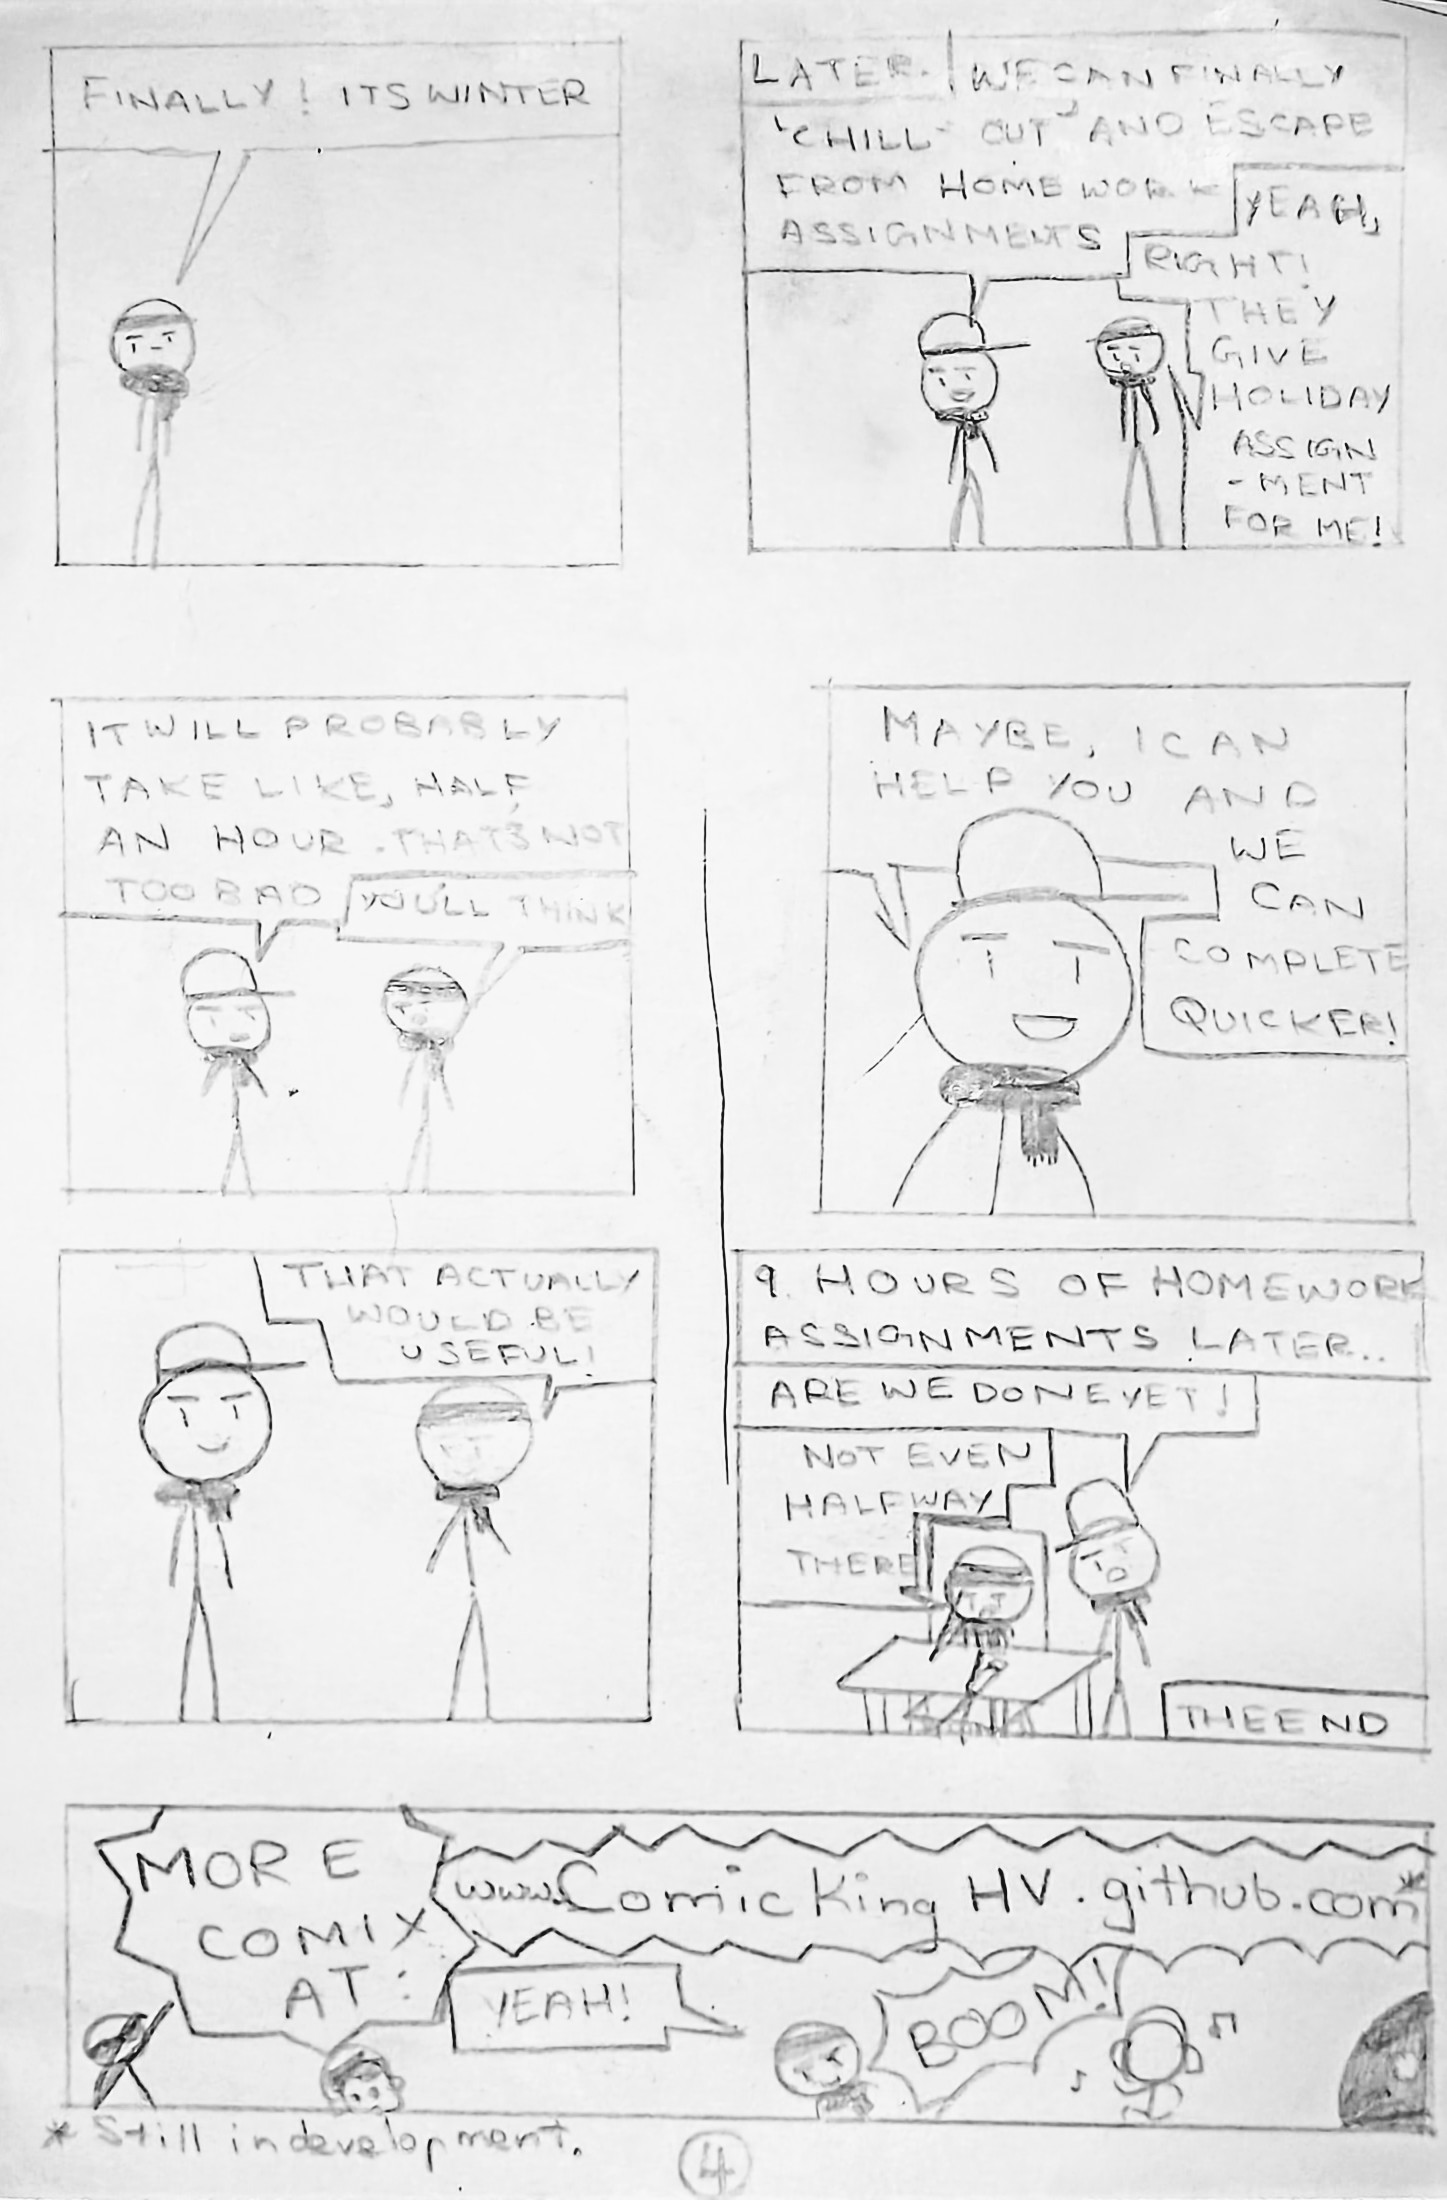 FINALLY! ITS WINTER
LATER. WE CAN FINALLY
'CHILL-OUT' AND ESCAPE
FROM HOMEWORK
ASSIGNMENTS
YEAH,
RIGHT!
THEY
GIVE
HOLIDAY
ASSIGN
-MENT
FOR ME!
IT WILL PROBABLY
TAKE LIKE, HALF
AN HOUR. THAT'S NOT
TOO BAD
YOU'LL THINK
MAYBE, I CAN
HELP YOU AND
WE
CAN
COMPLETE
QUICKER!
THAT ACTUALLY
WOULD BE
USEFUL!
9 HOURS OF HOMEWORK
ASSIGNMENTS LATER..
ARE WE DONE YET!
NOT EVEN
HALFWAY
THERE
THE END
MORE
COMIX
AT:
www.ComicKingHV.github.com*
YEAH!
BOOM!
* Still in development.
4